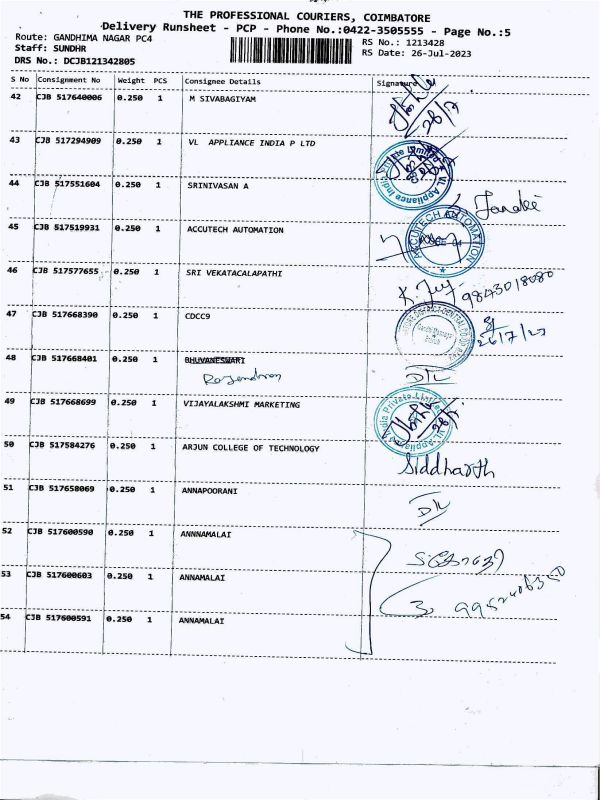 THE PROFESSIONAL COURIERS, COIMBATORE
Delivery Runsheet - PCP - Phone No.:0422-3505555 - Page No.:5
Route: GANDHIMA NAGAR PC4
RS No.: 1213428
Staff: SUNDHR
RS Date: 26-Jul-2023
DRS No.: DCJB121342805
S No Consignment No Weight PCS Consignee Details Signature
42 CJB 517640006 0.250 1 M SIVABAGIYAM
28/7
43 CJB 517294909 0.250 1 VL APPLIANCE INDIA P LTD
44 CJB 517551604 0.250 1 SRINIVASAN A
Janaki
45 CJB 517519931 0.250 1 ACCUTECH AUTOMATION
ACCUTECH AUTOMATION
46 CJB 517577655 0.250 1 SRI VEKATACALAPATHI
9843018080
47 CJB 517668390 0.250 1 CDCC9
26/7/23
48 CJB 517668401 0.250 1 BHUVANESWARI
Rajendran
49 CJB 517668699 0.250 1 VIJAYALAKSHMI MARKETING
50 CJB 517584276 0.250 1 ARJUN COLLEGE OF TECHNOLOGY
Siddharth
51 CJB 517658069 0.250 1 ANNAPOORANI
52 CJB 517600590 0.250 1 ANNNAMALAI
53 CJB 517600603 0.250 1 ANNAMALAI
54 CJB 517600591 0.250 1 ANNAMALAI